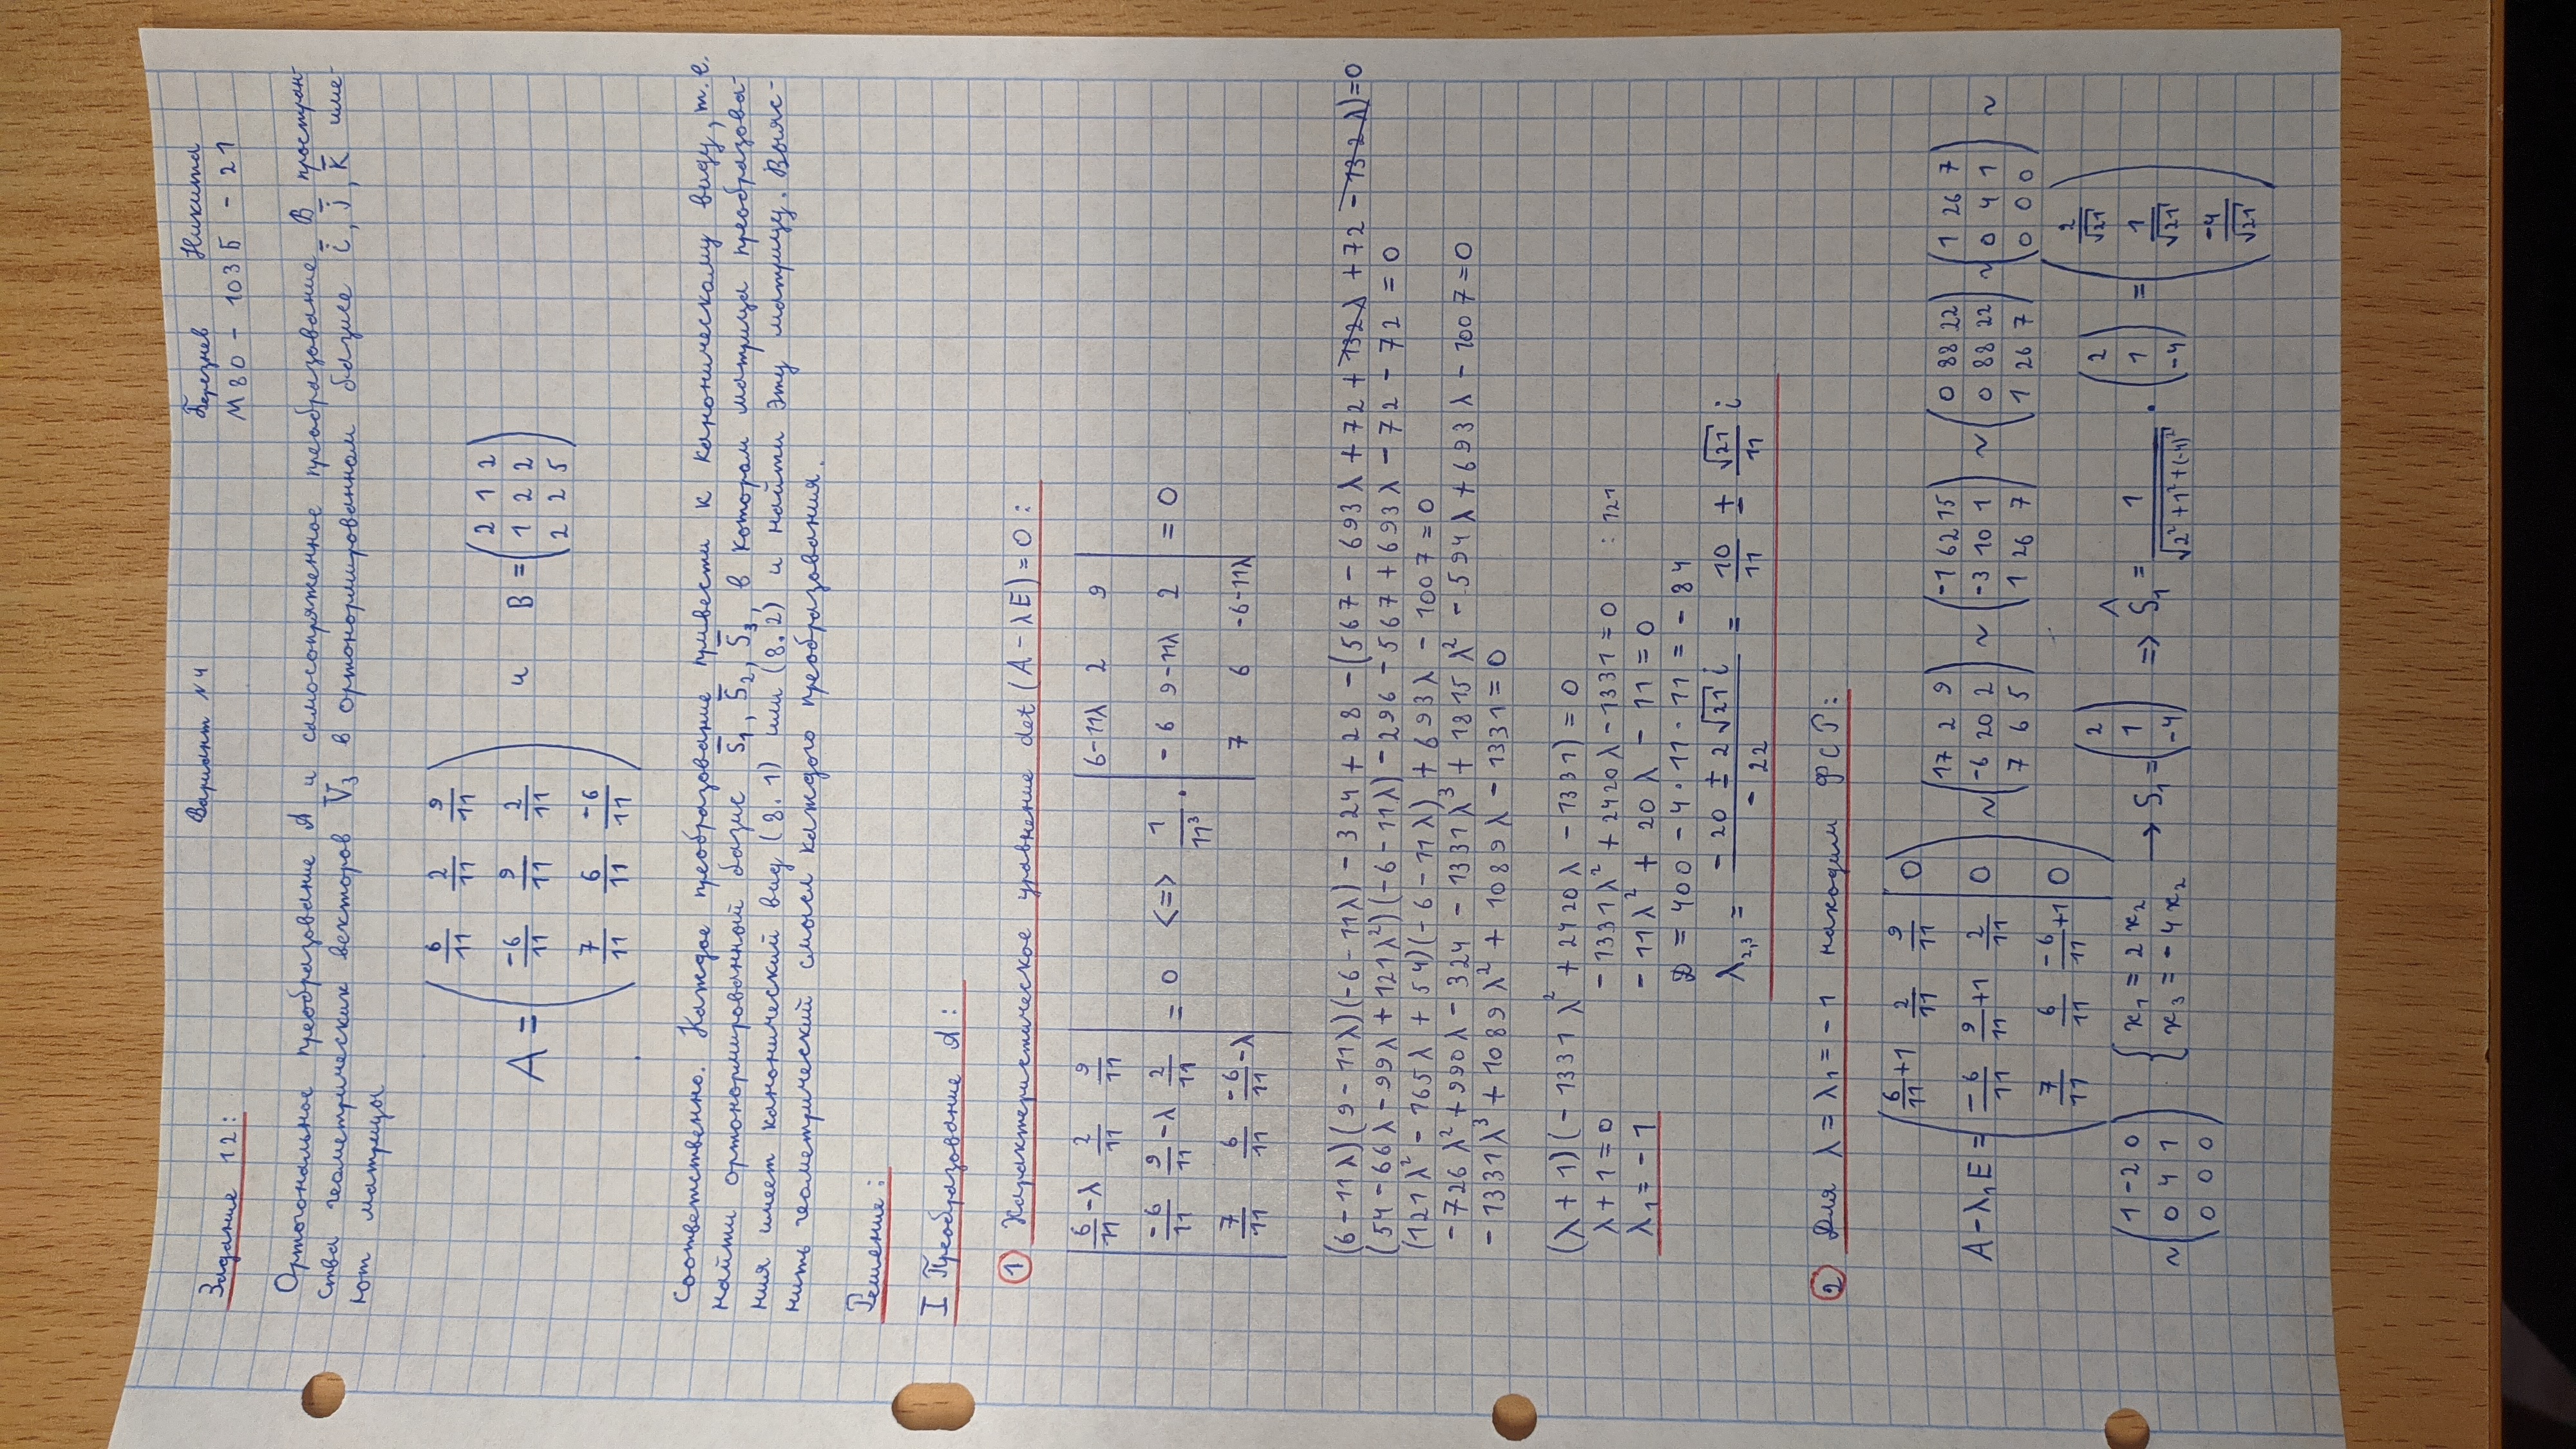 Вариант №4
Березнев Никита
Задание 12:
М80 - 103Б - 21
Ортогональное преобразование A и самосопряженное преобразование B простран-
ства геометрических векторов V₃ в ортонормированном базисе i̅, j̅, k̅ име-
ют матрицы
A = ( 6/11 2/11 9/11 ; -6/11 9/11 2/11 ; 7/11 6/11 -6/11 ) и B = ( 2 1 2 ; 1 2 2 ; 2 2 5 )
соответственно. Каждое преобразование привести к каноническому виду, т.е.
найти ортонормированный базис s̅₁, s̅₂, s̅₃, в котором матрица преобразова-
ния имеет канонический вид (8.1) или (8.2) и найти эту матрицу. Выяс-
нить геометрический смысл каждого преобразования.
Решение:
I Преобразование A:
1 Характеристическое уравнение det(A - λE) = 0:
| 6/11-λ 2/11 9/11 ; -6/11 9/11-λ 2/11 ; 7/11 6/11 -6/11-λ | = 0 <=> 1/11³ · | 6-11λ 2 9 ; -6 9-11λ 2 ; 7 6 -6-11λ | = 0
(6-11λ)(9-11λ)(-6-11λ) - 324 + 28 - (567 - 693λ + 72 + 132λ + 72 - 132λ) = 0
(54 - 66λ - 99λ + 121λ²)(-6-11λ) - 296 - 567 + 693λ - 72 - 72 = 0
(121λ² - 165λ + 54)(-6-11λ) + 693λ - 1007 = 0
-726λ² + 990λ - 324 - 1331λ³ + 1815λ² - 594λ + 693λ - 1007 = 0
-1331λ³ + 1089λ² + 1089λ - 1331 = 0
(λ + 1)(-1331λ² + 2420λ - 1331) = 0
λ + 1 = 0 -1331λ² + 2420λ - 1331 = 0 : 121
λ₁ = -1 -11λ² + 20λ - 11 = 0
D = 400 - 4·11·11 = -84
λ₂,₃ = (-20 ± 2√21 i)/(-22) = 10/11 ± √21/11 i
2 Для λ = λ₁ = -1 находим ФСР:
A - λ₁E = ( 6/11+1 2/11 9/11 | 0 ; -6/11 9/11+1 2/11 | 0 ; 7/11 6/11 -6/11+1 | 0 ) ~ ( 17 2 9 ; -6 20 2 ; 7 6 5 ) ~ ( -1 62 15 ; -3 10 1 ; 1 26 7 ) ~ ( 0 88 22 ; 0 88 22 ; 1 26 7 ) ~ ( 1 26 7 ; 0 4 1 ; 0 0 0 ) ~
~ ( 1 -2 0 ; 0 4 1 ; 0 0 0 ) { x₁ = 2x₂ ; x₃ = -4x₂ → S₁ = ( 2 ; 1 ; -4 ) => Ŝ₁ = 1/√(2²+1²+(-4)²) · ( 2 ; 1 ; -4 ) = ( 2/√21 ; 1/√21 ; -4/√21 )